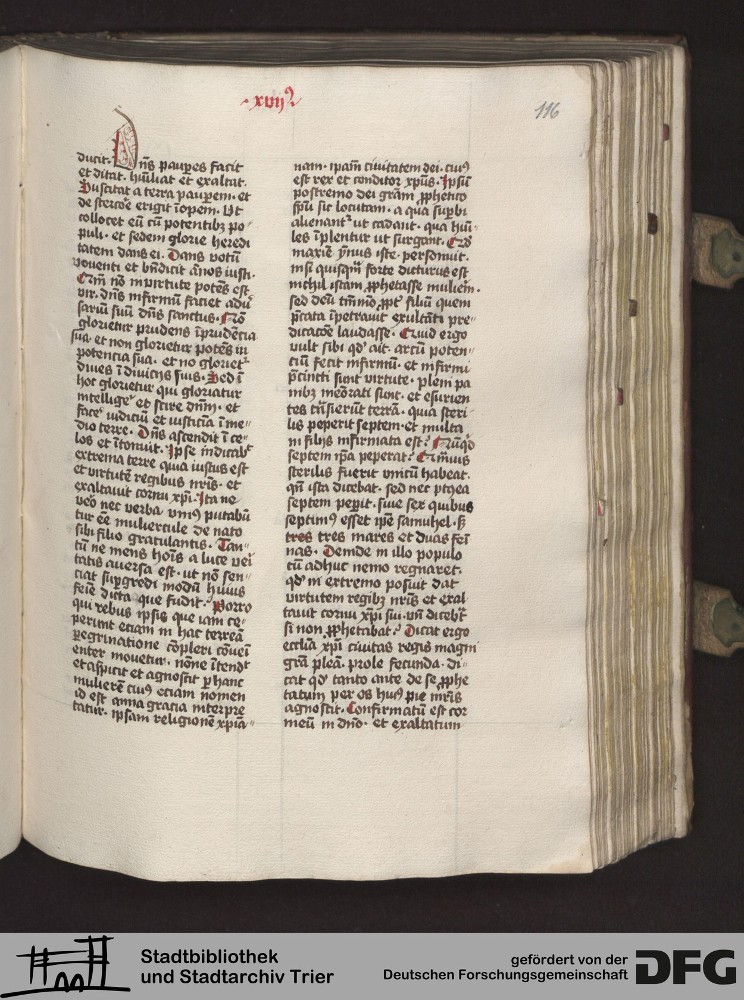 ·xvij
116
ducit. Dn̄s paup̲es facit
et ditat. hūiliat et exaltat.
Suscitat a terra paup̲em. et
de stercore erigit īopem. Ut
collocet eū cū potentibꝫ po
puli. et sedem glorie heredi
tatem dans ei. Dans votū
voventi et bn̄dicit ānos iusti.
vir. dn̄s infirmū faciet adu
sariū suū dn̄s sanctus. Nō
glorietur prudens ī prudēcia
sua. et non glorietur potēs in
potencia sua. et nō glorietᷣ
dives ī diviciis suis. Sed ī
hoc glorietur qui gloriatur
intelligeᷣ et scire dn̄m. et
faceᷣ iudiciū et iusticiā ī me
dio terre. Dn̄s ascendit ī ce
los et ītonuit. Ipse iudicabᷣ
extrema terre quia iustus est
et virtutē regibus nr̄is. et
exaltavit cornu xp̄i. Ita ne
vᵒo nec verba vniꝰ putabū
tur ēē muliercule de nato
sibi filio gratulantis. Tan
tū ne mens hoīs a luce vei
tatis aversa est. ut nō sen
ciat sup̲gredi modū huius
feīe dicta que fudit? Porro
qui rebus ipsis que iam ce
perunt eciam in hac terrea
p̲egrinatione cōpleri cōveī
enter movetur. nōne ītendᷣ
et aspicit et agnoscit p̲ hanc
mulierē cuiꝰ eciam nomen
id est anna gracia interpre
tatur. ipsam religionē xpīa
nam. ipam̄ civitatem dei. cuiꝰ
est rex et conditor xp̄us. Ipsā
postremo dei grām p̲phetico
sp̄u sic locutam. a qua sup̲bi
alienantᷣ ut cadant. qua hūi
les īplentur ut surgant.
maxīe ymnus iste personuit.
nisi quisqm̄ forte dicturus est
nichil istam p̲phetasse mulierē.
sed deū tm̄mō ꝓpt̄ filiū quem
p̄cata īpetravit exultāti pre
dicacōe laudasse. Quid ergo
vult sibi qᵈ ait. arcū poten
ciū fecit infirmū. et infirmi
p̄cincti sunt virtute. pleni pa
nibꝫ mēorati sunt. et esurien
tes trāsierūt terrā. quia steri
lis peperit septem. et multa
in filiis infirmata est? Nūqᵈ
septem ip̄a peperat? Quāvis
sterilis fuerit vnicū habeat.
qn̄ ista dicebat. sed nec postea
septem pep̲it. sive sex quibus
septimꝰ esset ip̄e samuhel. sꝫ
tres tres mares et duas feī
nas. Deinde in illo populo
cū adhuc nemo regnaret.
qᵈ in extremo posuit dat
virtutem regibꝫ nr̄is et exal
tavit cornu xp̄i sui. vn̄ dicebᷣ
si non p̲phetabat? Dicat ergo
eccl̄ia xp̄i civitas regis magni
grā plēa. prole fecunda. di
cat qᵈ tanto ante de se p̲phe
tatum per os huiꝰ pie mr̄is
agnoscit. Confirmatū est cor
meū in dn̄o. et exaltatum
Stadtbibliothek
und Stadtarchiv Trier
gefördert von der
Deutschen Forschungsgemeinschaft
DFG